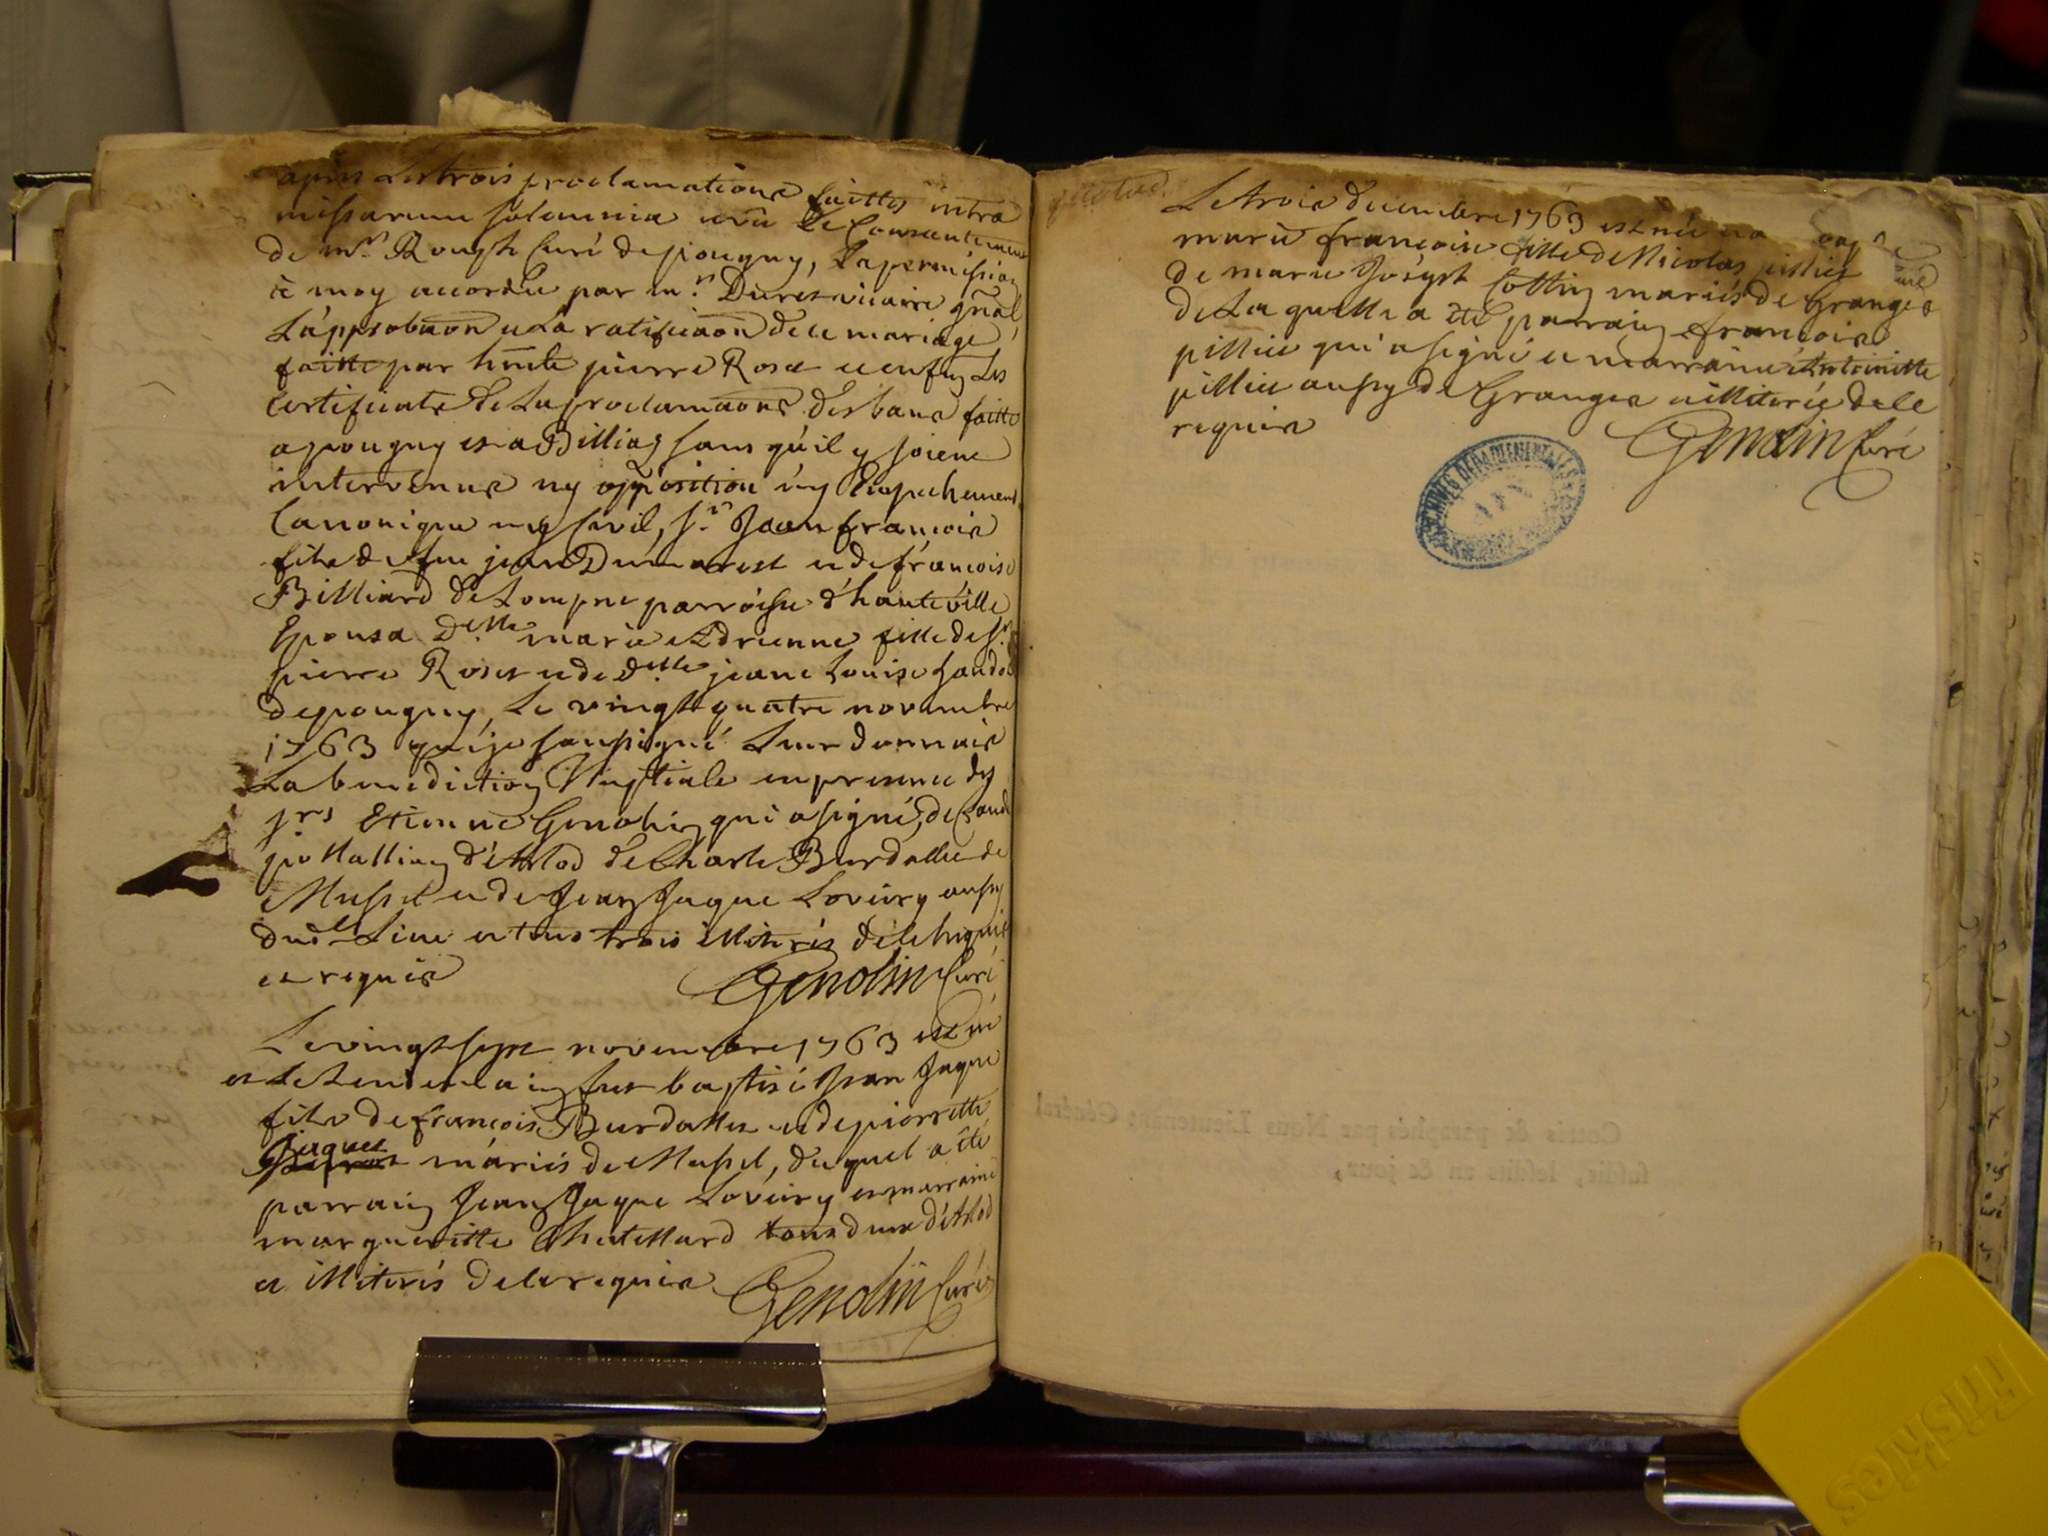 apres Les trois proclamations faittes intra
missarum solemnia et vu Le Consentement
de mr. Rouph Curé de pougny, La permission
à moy accordée par mr. Duret vicaire gñal,
L'approbaon et La ratificaon de ce mariage
faitte par hñble pierre Roset et enfin Les
Certificats de La proclamaons des bans faitte
a pougny et a Billiag sans qu'il y soient
intervenus ny opposition ny Empechement
Canonique ny Civil, sr. Jean francois
fils de feu jean Dumarest et de francoise
Billiard de Lompne parroisse d'hauteville
Epousa Delle marie Adrienne fille de sr.
pierre Roset et de delle jeane Louise
de pougny, Le vingt quatre novembre
1763 qui je soussigné Leur donnais
La benediction Nuptiale en presence des
srs Etienne Genolin qui a signé, de Claude
d'Arlod de Charle Burdallet de
Mussel et de Jean Jaque Loveiry aussy
dud. Lieu et tous trois illiterés de le
et requis Genolin Curé
Le vingt sept novembre 1763 est né
et Le Lendemain fut baptisé Jean Jaque
fils de francois Burdallet et de pierrette
Jaquet
mariés de Mussel, duquel a été
parrain Jean Jaque Loveiry et marraine
margueritte Chatellard tous deux d'Arlod
et illiterés de le requis Genolin Curé
Le trois decembre 1763 est née
marie francoise fille de Nicolas pillier
de marie Joseph Cottin mariés de Granges
de La quelle a été parrain francois
pillier qui a signé et marraine Antoinette
pillier aussy de Granges illiterée de le
requis Genolin Curé
ARCHIVES DEPARTEMENTALES
AIN
Cottés & paraphés par Nous Lieutenant Général
susdit, lesdits an & jour,
Fiskies